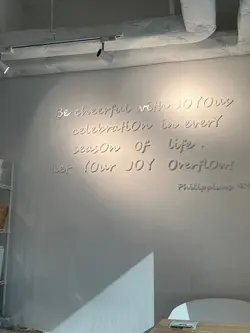 Be cheerful with JOYOus
celebratiOn in everY
seasOn Of life.
Let YOur JOY Overflow!
Philippians